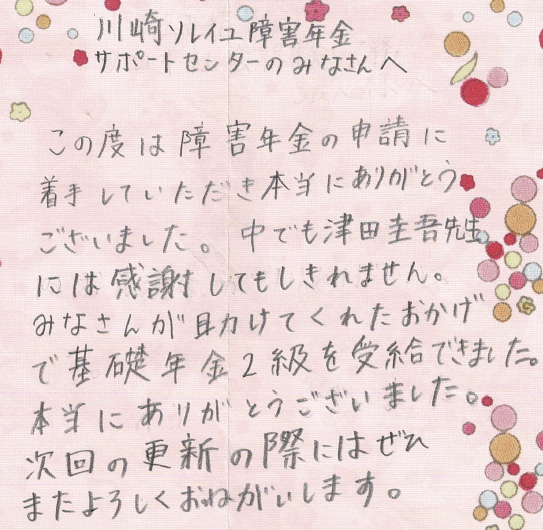 川崎ソレイユ障害年金
サポートセンターのみなさんへ
この度は障害年金の申請に
着手していただき本当にありがとう
ございました。中でも津田圭吾先生
には感謝してもしきれません。
みなさんが助けてくれたおかげ
で基礎年金2級を受給できました。
本当にありがとうございました。
次回の更新の際にはぜひ
またよろしくおねがいします。